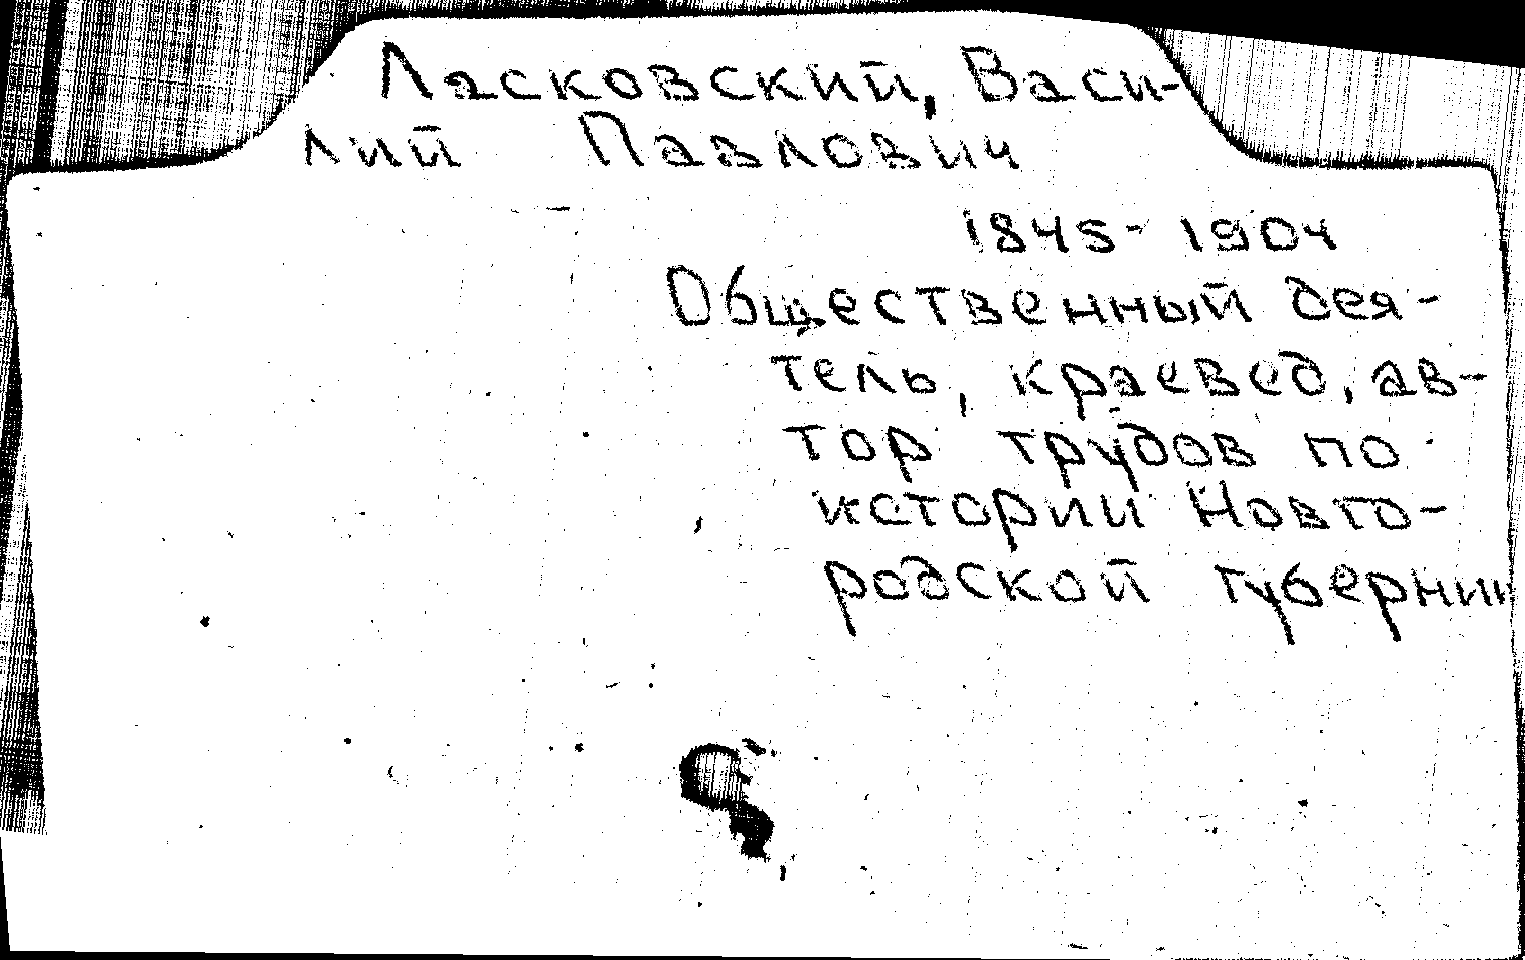 Ласковский, Васи-
лий Павлович
1845-1904
Общественный дея-
тель, краевед, ав-
тор трудов по
истории Новго-
родской губернии